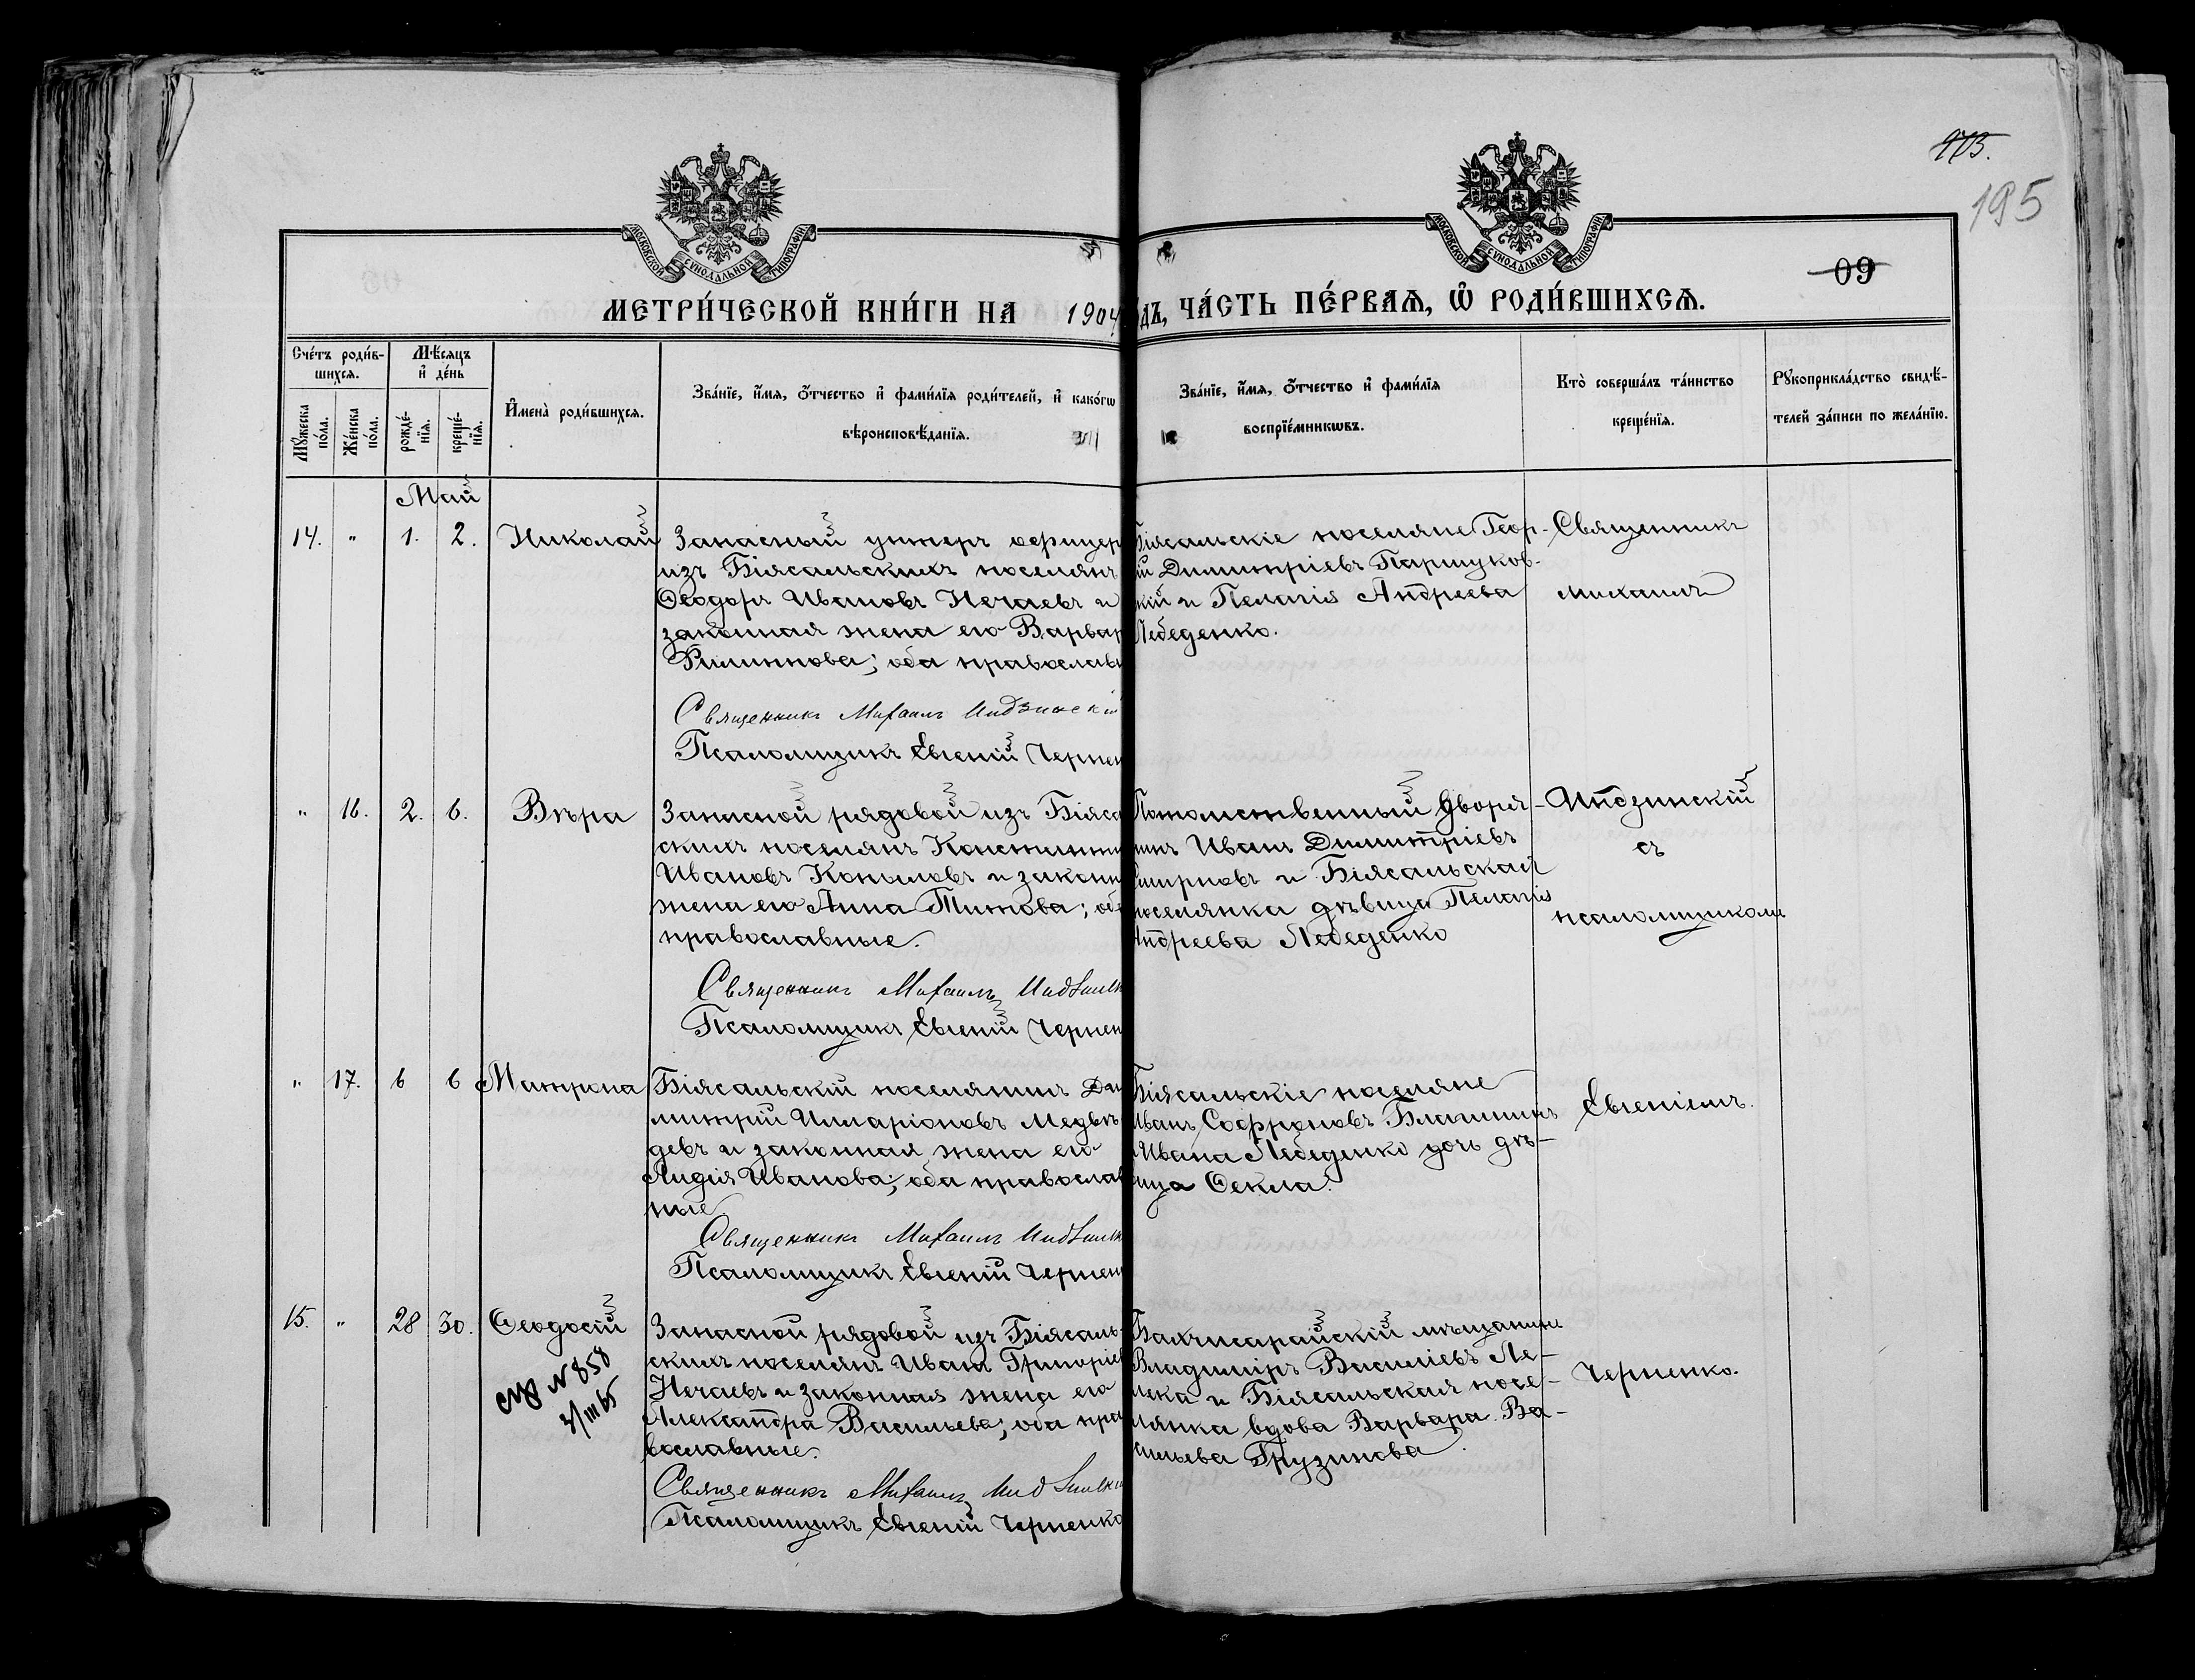 195
09
МОСКОВСКОЙ СѴНОДАЛЬНОЙ ТИПОГРАФІИ
МОСКОВСКОЙ СѴНОДАЛЬНОЙ ТИПОГРАФІИ
МЕТРИ́ЧЕСКОЙ КНИ́ГИ НА 1904
ДЪ, ЧА́СТЬ ПЕ́РВАѦ, Ѡ҆ РОДИ́ВШИХСѦ.
Сче́тъ роди́в-
шихсѧ.
Мѣ́сѧцъ
и҆ де́нь
Мꙋ́жеска
по́ла.
Же́нска
по́ла.
рожде́-
нїѧ.
креще́-
нїѧ.
И҆мена̀ роди́вшихсѧ.
Зва́нїе, и҆́мѧ, ѻ҆́тчество и҆ фами́лїѧ роди́телей, и҆ како́гѡ
вѣроисповѣ́данїѧ.
Зва́нїе, и҆́мѧ, ѻ҆́тчество и҆ фами́лїѧ
воспрїе́мникѡвъ.
Кто̀ соверша́лъ та́инство
креще́нїѧ.
Рꙋкоприкла́дство свидѣ́-
телей за́писи по жела́нїю.
Май
14. " 1. 2. Николай
Запасный унтеръ офицер
изъ Біясальскихъ поселянъ
Ѳеодоръ Ивановъ Нечаевъ и
законная жена его Варвар
Филиппова; оба православн
Священникъ Михаилъ Индзинскій
Псаломщикъ Евгеній Чернен
Біясальскіе поселяне Геор-
ій Димитріевъ Паршуков-
кій и Пелагія Андреева
Лебеденко.
Священникъ
Михаилъ
" 16. 2. 6. Вѣра
Запасной рядовой изъ Біяса
скихъ поселянъ Константи
Ивановъ Копыловъ и законн
жена его Анна Титова; об
православные.
Священникъ Михаилъ
Псаломщикъ Евгеній Чернен
Потомственный дворя-
инъ Иванъ Димитріевъ
Смирновъ и Біясальская
поселянка дѣвица Пелагія
Андреева Лебеденко
Индзинскій
съ
псаломщикомъ
" 17. 6 6 Матрона
Біясальскій поселянинъ Ди
митрій Илларіоновъ Медвѣ
девъ и законная жена его
Лидія Иванова; оба православ
ные
Священникъ Михаилъ
Псаломщикъ Евгеній Чернен
Біясальскіе поселяне
Иванъ Софроновъ
Ивана Лебеденко дочь дѣ-
ица Ѳекла.
Евгеніемъ.
15. " 28 30. Ѳеодосій
N 858
Запасной рядовой изъ Біясаль
скихъ поселянъ Иванъ Григоріев
Нечаевъ и законная жена его
Александра Васильева; оба пра
вославные.
Священникъ Михаилъ
Псаломщикъ Евгеній Черненко
Бахчисарайскій мѣщанинъ
Владиміръ Василіевъ Ле-
ека и Біясальская посе-
лянка вдова Варвара Ва-
сильева Грузинова.
Черненко.